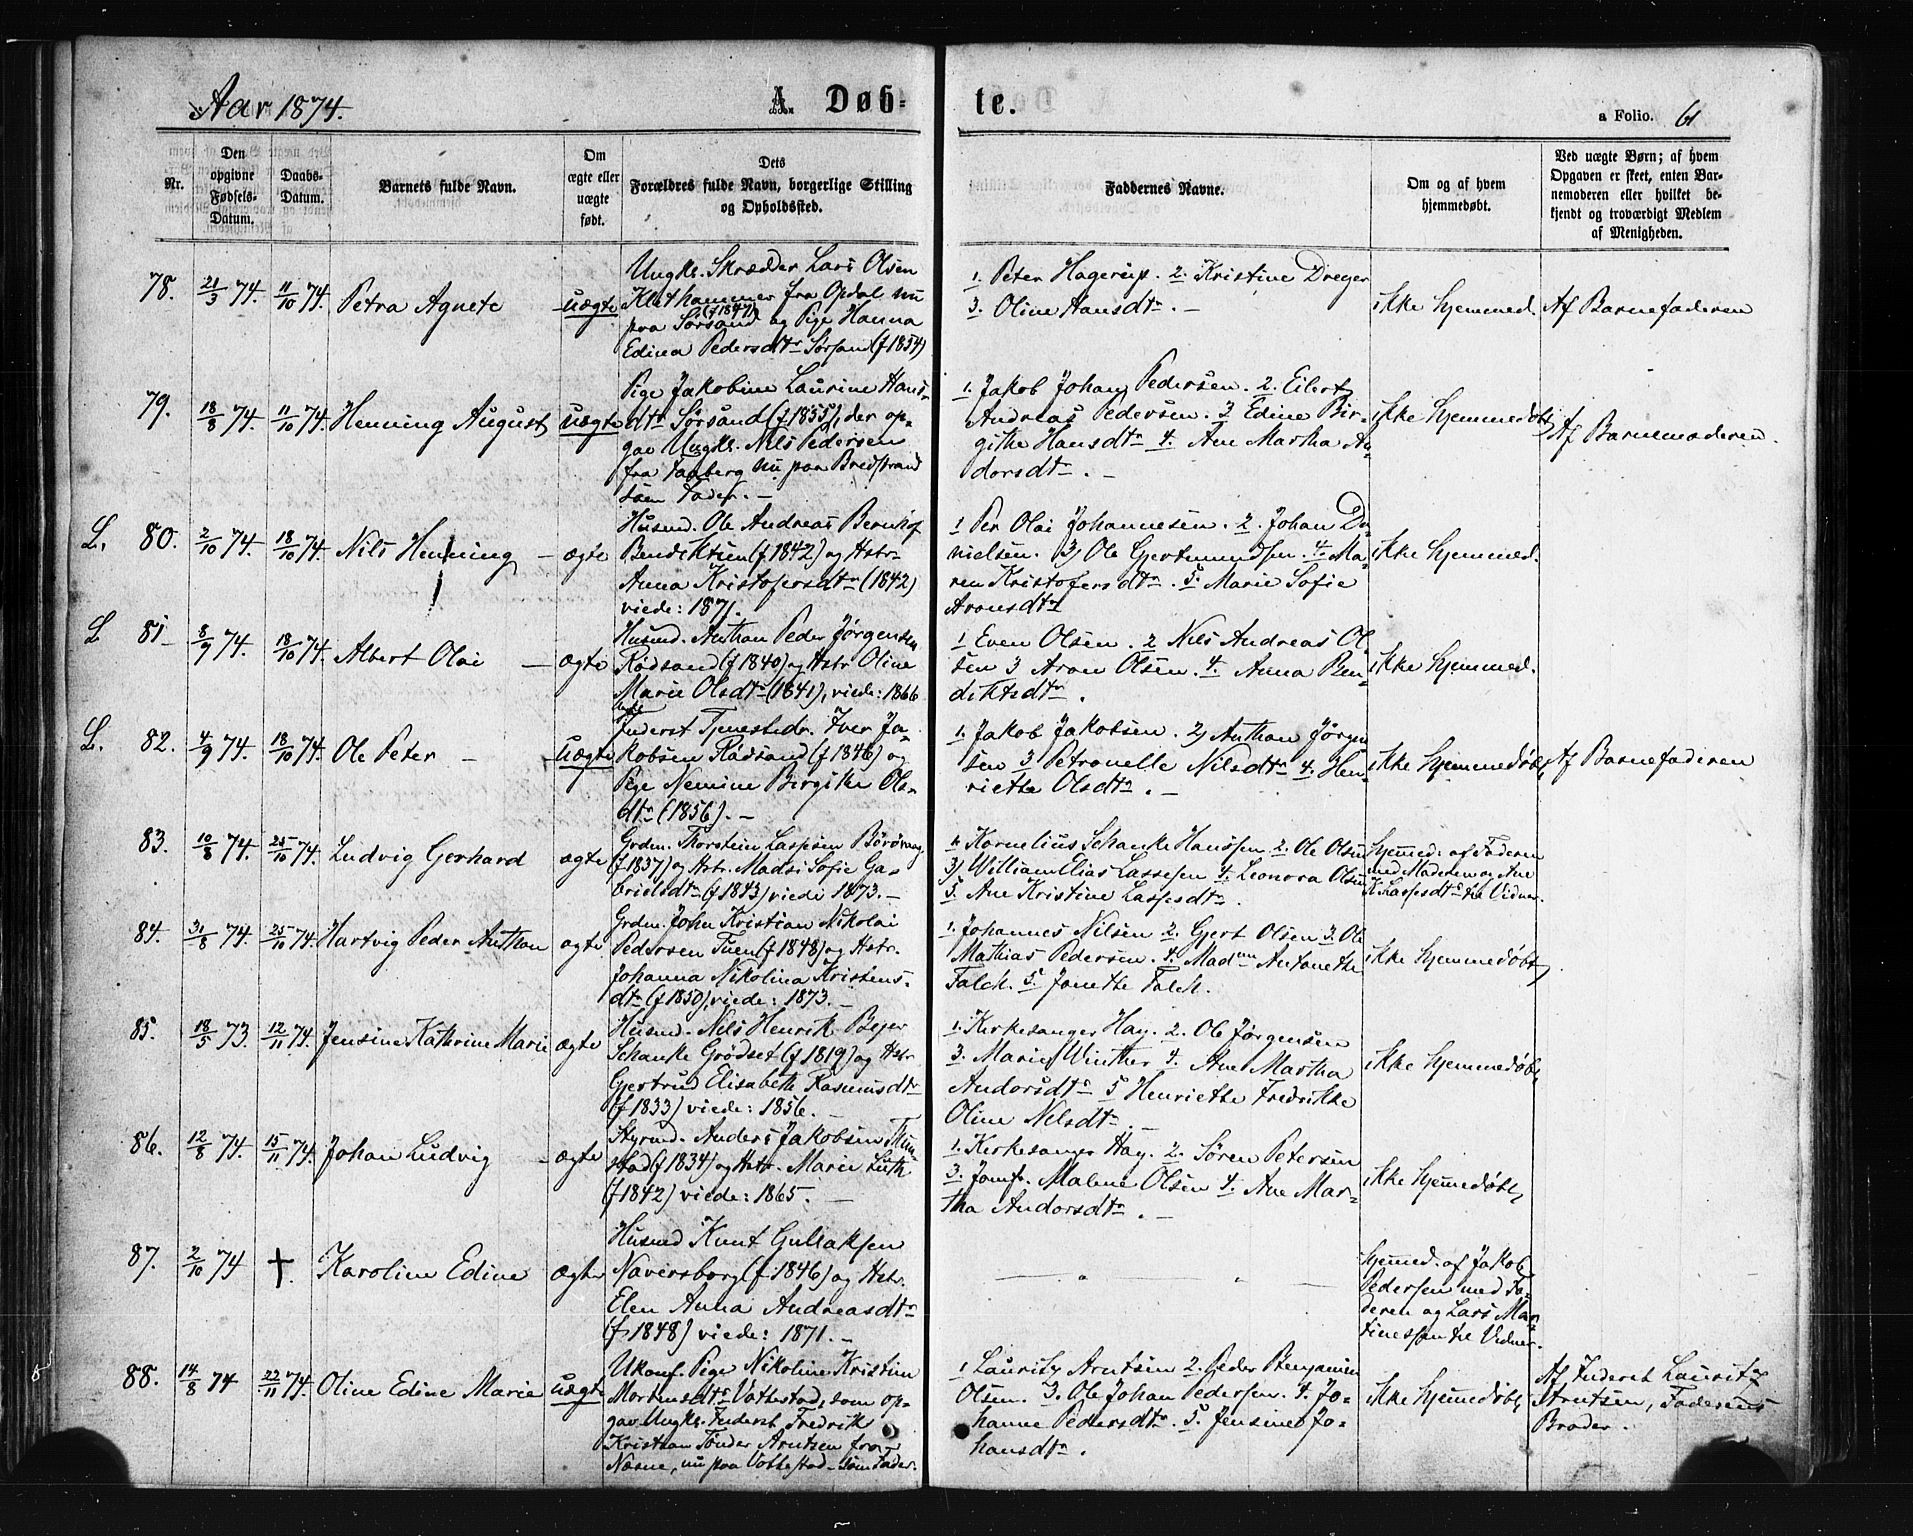 Aar 1874.
A. Døb-
te.
a Folio. 61
Nr.
Den
opgivne
Fødsels-
Datum.
Daabs-
Datum.
Barnets fulde Navn.
Om
ægte eller
uægte
født.
Dets
Forældres fulde Navn, borgerlige Stilling
og Opholdssted.
Faddernes Navne.
Om og af hvem
hjemmedøbt.
Ved uægte Børn; af hvem
Opgaven er skeet, enten Bar-
nemoderen eller hvilket be-
kjendt og troværdigt Medlem
af Menigheden.
78. 21/3 74. 11/10 74. Petra Agnete uægte
Ungk. Skrædder Lars Olsen
Klethammer fra Opdal nu
(f 1847)
paa Sørsand og Pige Hanna
Edina Pedersdtr Sørsand (f 1854)
1. Peter Hagerup. 2. Kristine Dreyer
3. Oline Hansdtr. —
ikke hjemmed. Af Barnefaderen
79. 18/8 74. 11/10 74. Henning August uægte
Pige Jakobine Laurine Hans-
dtr Sørsand (f 1855), der op-
gav Ungk. Nils Pedersen
fra Vaaberg nu paa Bredstrand
som Fader. —
1. Jakob Johan Pedersen. 2. Eilert
Andreas Pedersen. 3 Edine Bir-
githe Hansdtr 4. Ane Martha An-
dorsdtr. —
ikke hjemmedøbt Af Barnemoderen.
L. 80. 2/10 74. 18/10 74. Nils Henning — ægte
Husmd. Ole Andreas Bernhof
Bendiktsen (f 1842) og Hstr.
Anna Kristofersdtr (1842)
viede: 1871.
1 Per Olai Johannesen. 2. Johan Da-
nielsen. 3) Ole Gjertmundsen. 4. Ma-
ren Kristofersdtr. 5. Marie Sofie
Aronsdtr
ikke hjemmed.
L 81 8/9 74. 18/10 74. Albert Olai — ægte
Husmd. Anthon Peder Jørgensen
Rødsand (f 1840) og Hstr Oline
Marie Olsdtr (1841), viede: 1866
1 Even Olsen. 2 Nils Andreas Ol-
sen 3 Aron Olsen. 4. Anna Ben-
diktsdtr.
ikke hjemmed.
L. 82. 4/9 74. 18/10 74. Ole Peter — uægte
Inderst Tjenestedr. Iver Ja-
kobsen Rødsand (f 1846) og
Pige Nemine Birgitte Ols-
dtr (1856). —
1. Jakob Jakobsen. 2) Anthon Jørgen-
sen 3 Petronelle Nilsdtr 4. Hen-
riette Olsdtr. —
ikke hjemmedøbt Af Barnefaderen
83. 10/8 74. 25/10 74. Ludvig Gerhard ægte
Grdm. Thorstein Lassesen Børøvaag
(f 1837) og Hstr. Madsi Sofie Ga-
brielsdtr (f 1843) viede 1873. —
1. Kornelius Schanke Hanssen 2. Ole Olsen
3) William Elias Lassesen 4. Leonora Olsen
5. Ane Kristine Lassesdtr.
Hjemmed. af Faderen
med Moderen og Ane
K. Lassesdtr til Vidner.
84. 31/8 74. 25/10 74. Hartvig Peder Anthon ægte
Grdm. John Kristian Nikolai
Pedersen Tuen (f 1848) og Hstr.
Johanna Nikolina Kristens-
dtr (f 1850), viede: 1873. —
1. Johannes Nilsen 2. Gjert Olsen 3. Ole
Mathias Pedersen. 4. Madme Antonette
Falch. 5. Janette Falch.
ikke hjemmedøbt
85. 18/5 73. 12/11 74. Jensine Kathrine Marie ægte
Husmd. Nils Henrik Bejer
Schanke Grødset (f 1819) og Hstr
Gjertrud Elisabeth Rasmusdtr
(f 1833) viede: 1856. —
1. Kirkesanger Hay. 2. Ole Jørgensen
3. Marie Winther 4. Ane Martha
Andorsdtr 5 Henriette Fredrikke
Oline Nilsdtr. —
ikke hjemmedøbt
86. 12/8 74. 15/11 74. Johan Ludvig — ægte
Styrmd. Anders Jakobsen Thun-
stad (f 1834) og Hstr. Marie Luth
(f 1842) viede: 1865. —
1. Kirkesanger Hay. 2. Søren Petersen
3. Jomfr. Malene Olsen 4. Ane Mar-
tha Andorsdtr. —
ikke hjemmedøbt
87. 2/10 74 †. Karoline Edine ægte
Husmd Knut Gullaksen
Naversborg (f. 1846) og Hstr.
Elen Anna Andreasdtr
(f 1848) viede: 1871. —
— " — " —
hjemmed. af Jakob
Pedersen med Fa-
deren og Lars Mar-
tinessen til Vidner.
88. 14/8 74 22/11 74. Oline Edine Marie uægte
Ukonf. Pige Nikoline Kristine
Mortensdtr Vottestad, som op-
gav Ungk. Inderst Fredrik
Kristian Tønder Arntsen fra
Næsne, nu paa Vottestad som Fader.
1 Lauritz Arntsen 2. Peder Benjamin
Olsen. 3. Ole Johan Pedersen. 4. Jo-
hanne Pedersdtr. 5. Jensine Jo-
hansdtr.
ikke hjemmedøbt
Af Inderst Lauritz
Arntsen, Faderens
Broder.